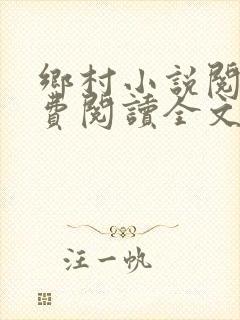 鄉村小說閱
費閱讀全文
汪一帆